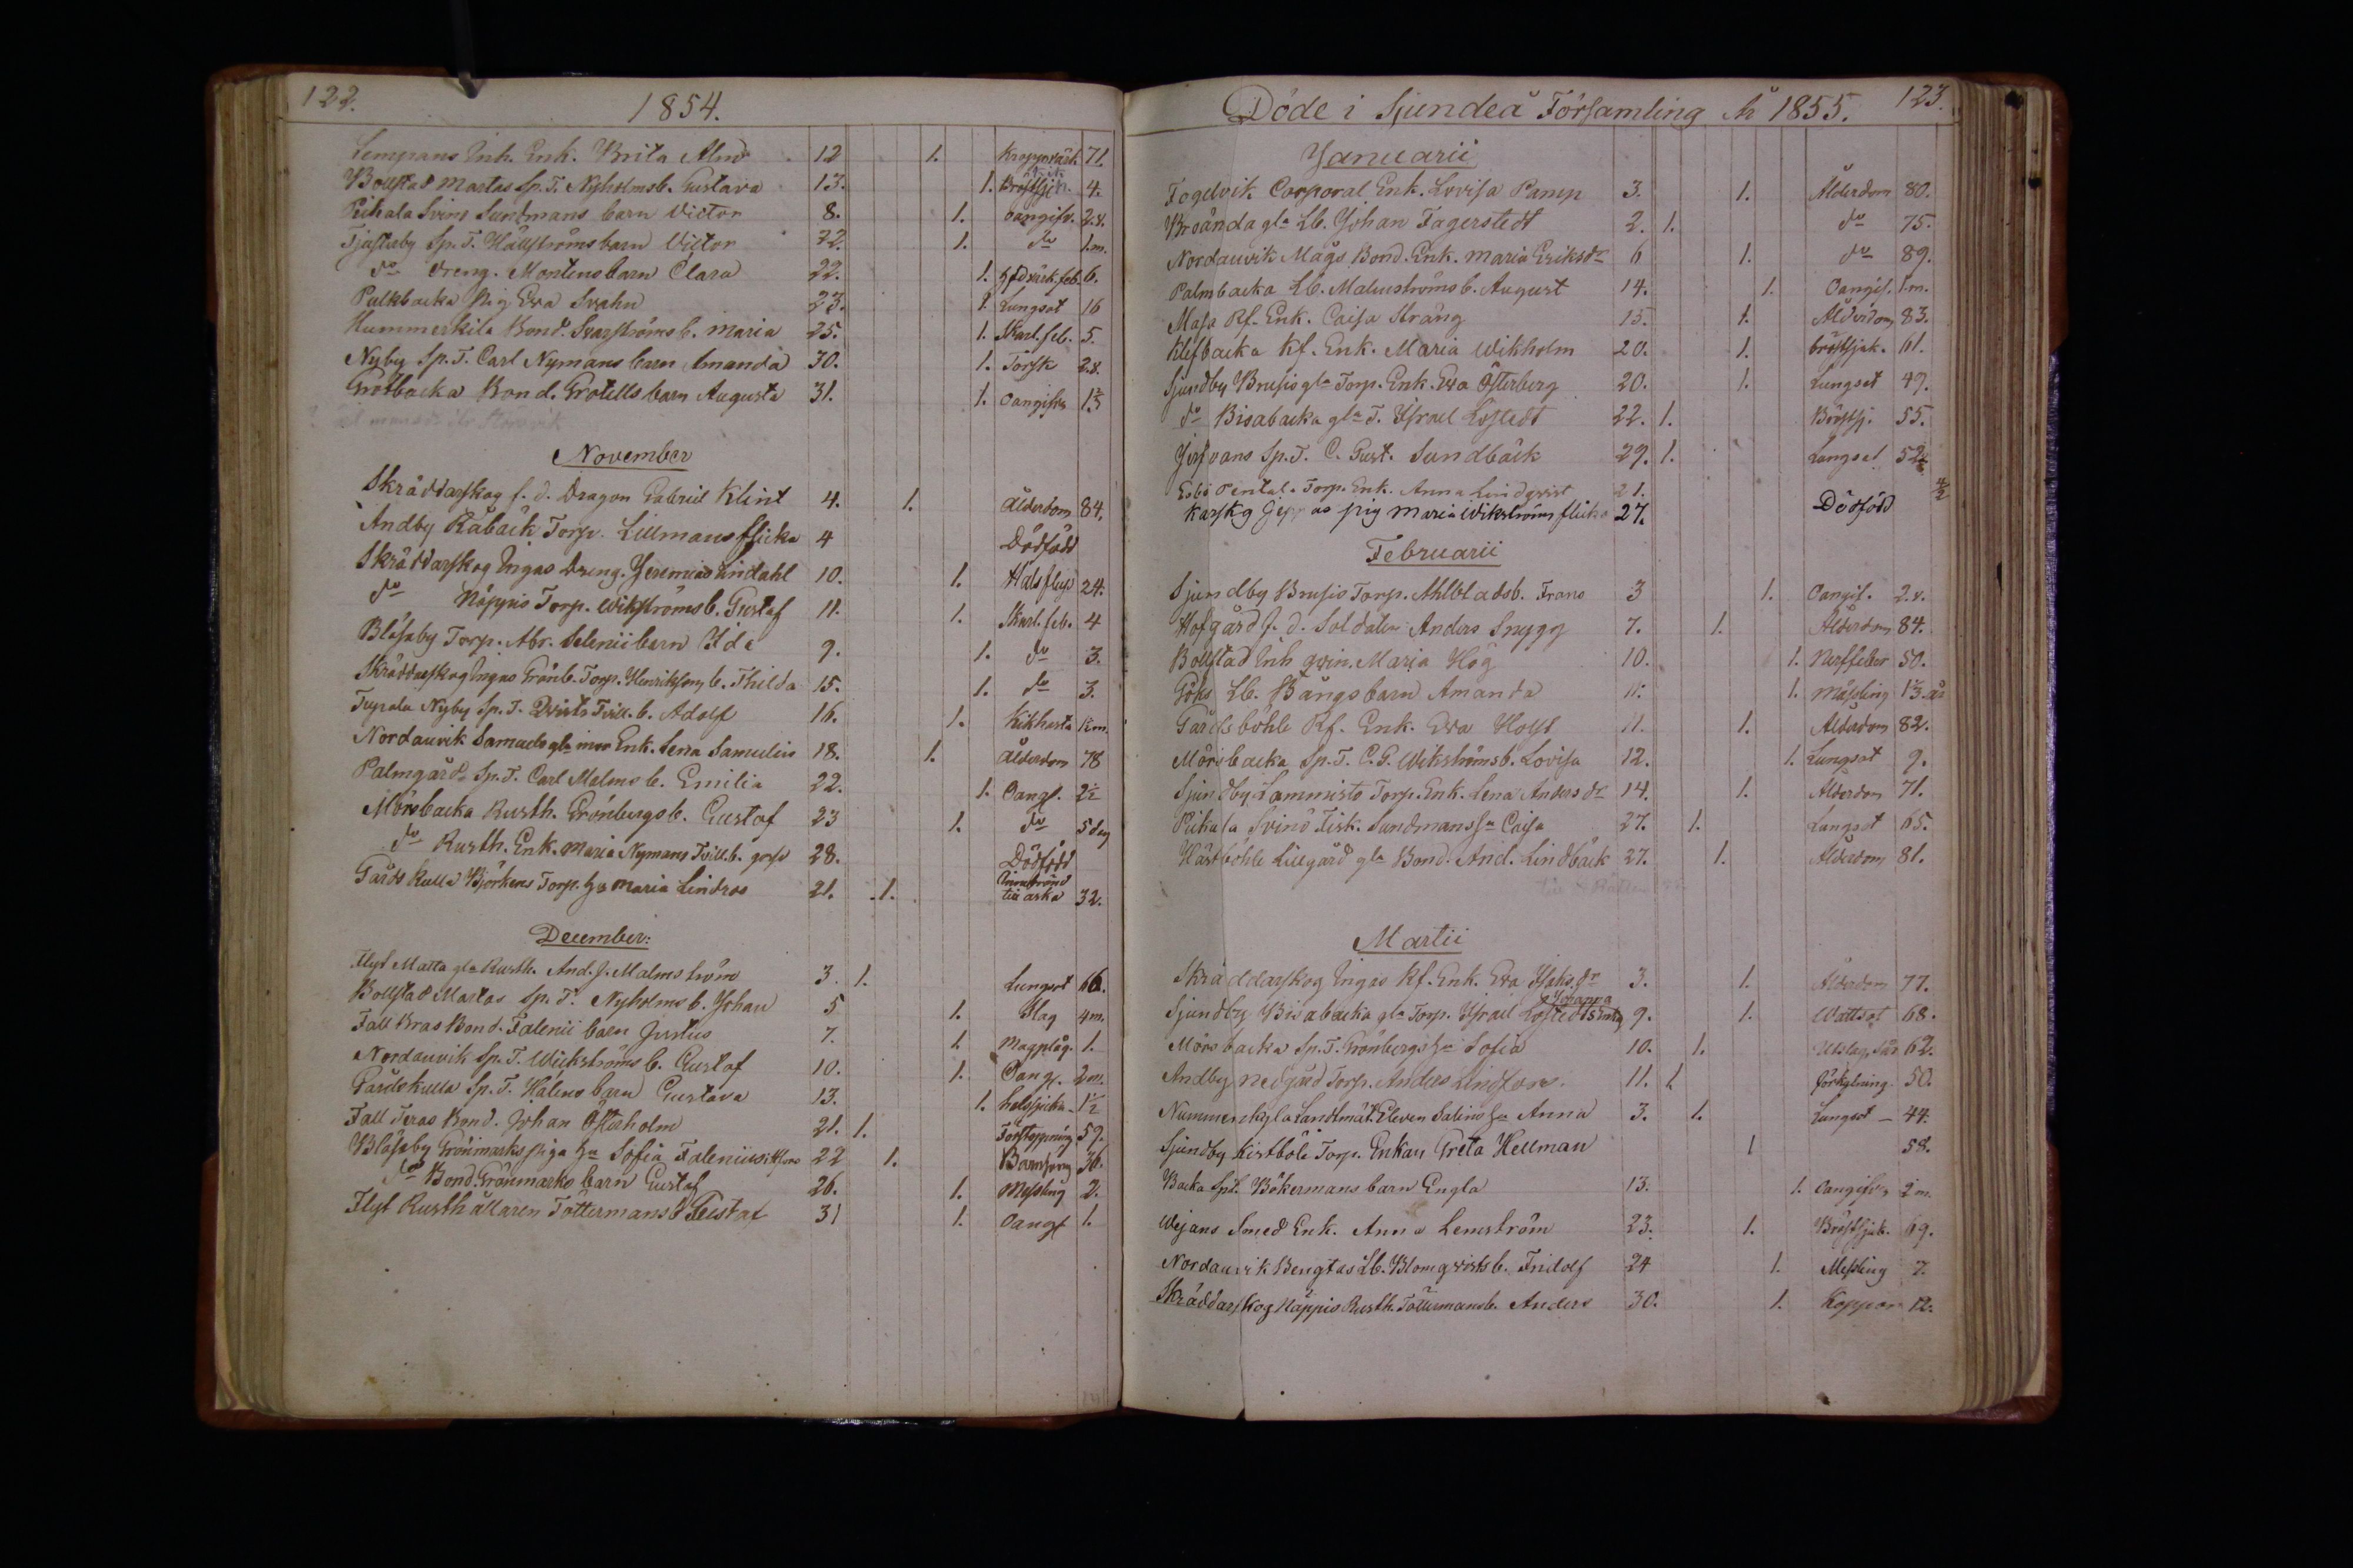 122.
1854.
Lempans Inh. Enk. Brita Alm 12 1. 71.
Bollstad Martas Sp. T. Nyholms b. Gustava 13. 1. Bröstsjk. 4.
Pikala Svinö Sundmans barn Victor 8. 1. oangifv. 2.v.
Tjusterby Sp. T. Hällströms barn Victor 22. 1. do 1.m.
do Dreng. Mortens barn Clara 22. 1. 6.
Pulkbacka Pig. Eva Svahn 23. 1. Lungsot 16
Hummerkila Bond. Svarströms b. Maria 25. 1. Skarl. feb. 5.
Nyby Sp. T. Carl Nymans barn Amanda 30. 1. Torsk 2.v.
Grotbacka Bond. Grotells barn Augusta 31. 1. oangifv.
November
Skräddarskog f. d. Dragon Gabriel Klint 4. 1. Ålderdom 84.
Andby Råbäck Torp. Lillmans flicka 4 Dödfödd
Skräddarskog Ingas Dreng. Jeremias Lindahl 10. 1. Halsfluss 24.
do Näppis Torp. Wikströms b. Gustaf 11. 1. Skarl. feb. 4
Blåsaby Torp. Abr. Selenii barn Ida 9. 1. do 3.
Skräddarskog Ingas Grönb. Torp. Henriksons b. Thilda 15. 1. do 3.
Nyby Sp. T. Qvists Tvill. b. Adolf 16. 1. Kikhosta
Nordanvik Samuels gla mor Enk. Lena Samuelis 18. 1. Ålderdom 78
Palmgård Sp. T. Carl Malms b. Emilia 22. 1. Oangf. 2½
Mörsbacka Rusth. Grönbergs b. Gustaf 23 1. do 5 dag
do Rusth. Enk. Maria Nymans Tvill. b. 28. Dödfödd
Gårdskulla Björkens Torp. Ha Maria Lindros 21. 1. Innebränd till aska 32.
December:
Flyt Matta gla Rusth. And. J. Malmström 3. 1. Lungsot 66.
Bollstad Martas Sp. T. Nyholms b. Johan 5 1. Slag 4m.
Fall Bras Bond. Falenii barn Justus 7. 1. Magplåg. 1.
Nordanvik Sp. T. Wickströms b. Gustaf 10. 1. Oangf. 2m.
Gårdskulla Sp. T. Haléns barn Gustava 13. 1. halssjuka 1½
Fall Teras Bond. Johan Österholm 21. 1. Förstoppning 59.
Blåsaby Grönmarks piga Ha Sofia Falenius 22 1. Barnsäng 36.
do Bond. Grönmarks barn Gustaf 26. 1. Messling 2.
Flyt Rusthållaren Töttermans b Gustaf 31 1. Oangf 1.
Döde i Sjundeå Församling År 1855. 123.
Januarii
Fogelvik Corporal Enk. Lovisa Pamp 3. 1. Ålderdom 80.
Brända gla Lb. Johan Fagerstedt 2. 1. do 75.
Nordanvik Mågs Bond. Enk. Maria Eriksdr 6 1. do 89.
Palmbacka Lb. Malmströms b. August 14. 1. Oangif. 1.m.
Masa Rf. Enk. Caisa Sträng 15. 1. Ålderdom 83.
Klefbacka Kf. Enk. Maria Wikholm 20. 1. bröstsjuk. 61.
Sjundby Brusis gla Torp. Enk. Eva Österberg 20. 1. Lungsot 49.
do Bisabacka gla T. Israel Löfstedt 22. 1. Bröstsj. 55.
Sp. T. C. Gust. Sundbäck 29. 1. Lungsot 52
Esbo Pentala Torp. Enk. Anna Lindqvist 21.
Karskog pig Maria Wikströms flicka 27. Dödfödd
Februarii
Sjundby Brusis Torp. Ahlblads b. Frans 3 1. Oangif. 2.v.
Hofgård f. d. Soldaten Anders Snygg 7. 1. Ålderdom 84.
Bollstad Inh qvin. Maria Hög 10. 1. Nerffeber 50.
Göks Lb. Bångs barn Amanda 11. 1. Mässling 1½ år
Gårdsböhle Rf. Enk. Eva Holst 11. 1. Ålderdom 82.
Mörsbacka Sp. T. C. G. Wikströms b. Lovisa 12. 1. Lungsot 9.
Sjundby Lammists Torp. Enk. Lena Andersdr 14. 1. Ålderdom 71.
Pikala Svinö Fisk. Sundmans Ha Caisa 27. 1. Lungsot 65.
Härtbohle Lillgård gla Bond. And. Lindbäck 27. 1. Ålderdom 81.
Martii
Skräddarskog Ingas Kf. Enk. Eva Isaksdr 3. 1. Ålderdom 77.
Johanna
Sjundby Bisabacka gla Torp. Israel Löfstedts Enka 9. 1. Wattsot 68.
Mörsbacka Sp. T. Grönbergs Ha Sofia 10. 1. Utslag, sår 62.
Andby Nedgård Torp. Anders Lindfors. 11. 1. Förkylning 50.
Nummenkyla Landtmät. Eleven Salins Ha Anna 3. 1. Lungsot – 44.
Sjundby Kistböle Torp. Enkan Greta Hellman 1 58.
Backa Spt. Bökermans barn Engla 13. 1. Oangifv. 2 m.
Wejans Smed Enk. Anna Lemström 23. 1. Bröstsjuk. 69.
Nordanvik Bengtas Lb. Blomqvists b. Fridolf 24 1. Messling 7.
Skräddarskog Näppis Rusth. Töttermans b. Anders 30. 1. Koppor 12.